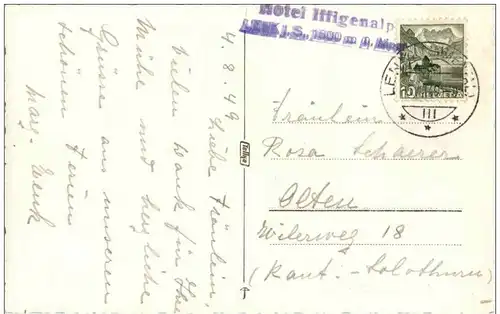 Hotel Iffigenalp
LENK i. S. 1600 m ü. Meer
LENK
III
10
HELVETIA
4.8.49
Liebe Fräulein,
Vielen Dank für Ihre
Mühe und herzliche
Grüsse aus unseren
schönen Ferien
Marg. Wenk
Fräulein
Rosa Schaerer
Olten
Wilerweg 18
(Kant. Solothurn)